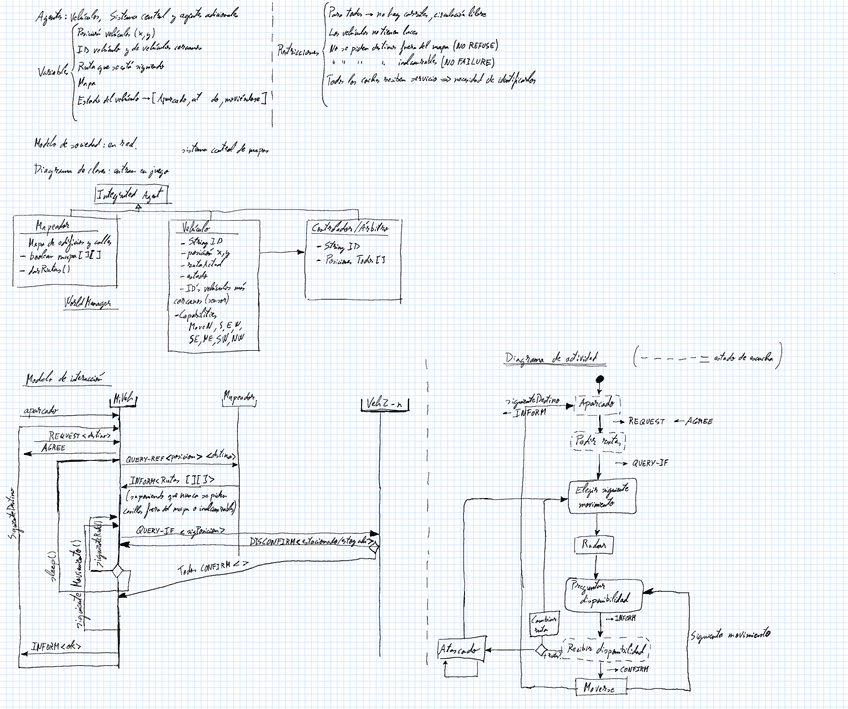 Agentes: Vehículos, Sistema central y agentes adicionales
Variables
Posición vehículo (x,y)
ID vehículo y de vehículos cercanos
Ruta que se está siguiendo
Mapa
Estado del vehículo → [Aparcado, moviéndose]
Restricciones
Para todos → no hay carriles, circulación libre
Los vehículos no tienen luces
No se piden destinos fuera del mapa (NO REFUSE)
" " " " inalcanzables (NO FAILURE)
Todos los coches reciben servicio => necesidad de identificarlos
Modelo de sociedad: en red.
sistema central de mapas
Diagrama de clases: entran en juego
Integrated Agent
Mapeador
Mapa de edificios y calles
- boolean mapa [][]
- darRutas()
WorldManager
Vehículo
- String ID
- posición x,y
- rutaActual
- estado
- ID's vehículos más
cercanos (sensor)
- Capabilities
MoveN, S, E, W,
SE, NE, SW, NW
Controlador/Árbitro
- String ID
- Posiciones Todos []
Modelo de interacción
MiVeh
Mapeador
Veh2-n
aparcado
REQUEST <destino>
AGREE
QUERY-REF <posicion> <destino>
INFORM <Rutas [][]>
(suponiendo que nunca se piden
casillas fuera del mapa o inalcanzables)
QUERY-IF <sigPosicion>
DISCONFIRM <estacionado/atascado>
Todos CONFIRM <>
SiguienteDestino
sleep()
Siguiente Movimiento()
siguienteRuta()
INFORM <ok>
Diagrama de actividad
(------ = estado de escucha)
siguienteDestino
← INFORM
Aparcado
→ REQUEST ← AGREE
Pedir rutas
→ QUERY-IF
Elegir siguiente
movimiento
Radar
Preguntar
disponibilidad
→ INFORM
Cambiar
ruta
Recibir disponibilidad
Atascado
→ CONFIRM
Moverse
Siguiente movimiento